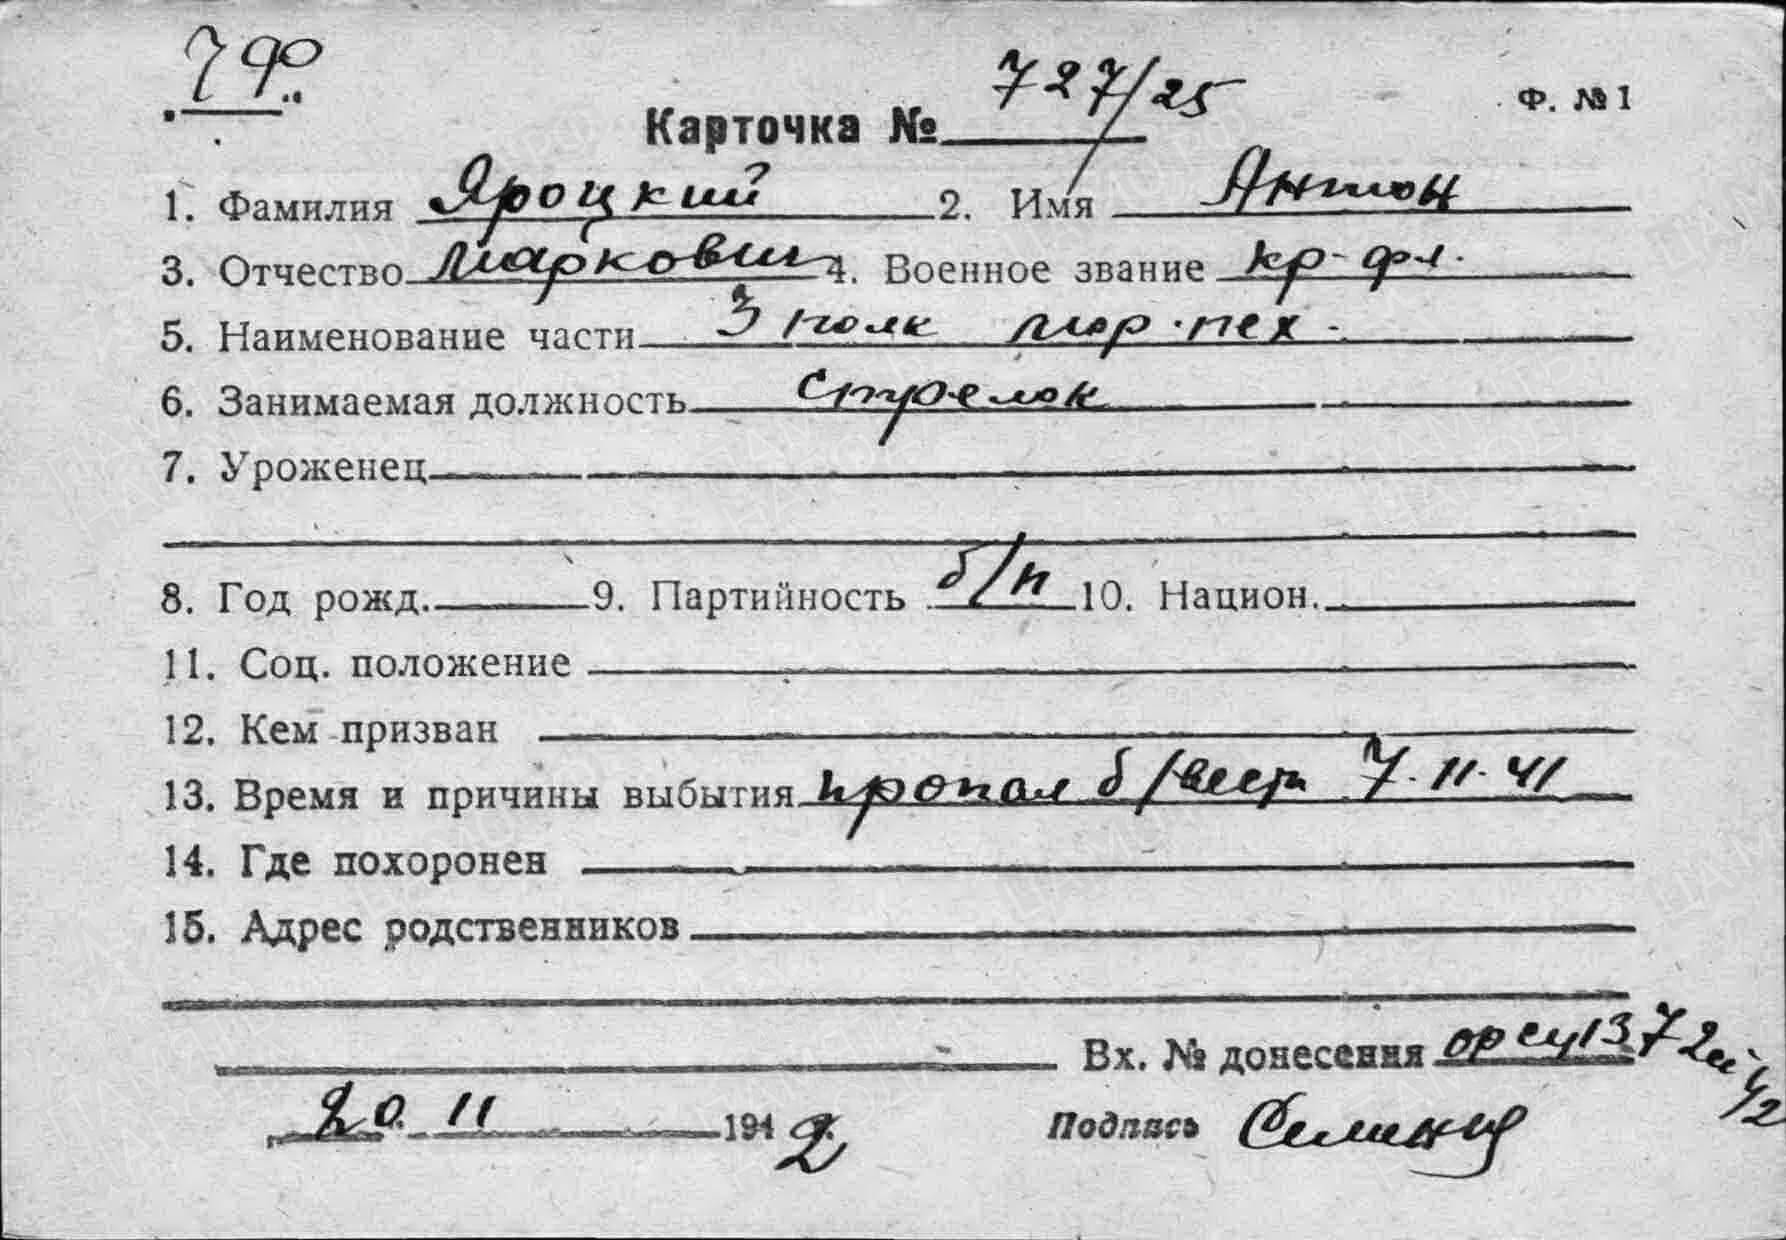 7 Ф
Карточка № 727/25
Ф. № 1
1. Фамилия Яроцкий 2. Имя Антон
3. Отчество Маркович 4. Военное звание кр-фл.
5. Наименование части 3 полк мор. пех.
6. Занимаемая должность стрелок
7. Уроженец
8. Год рожд. 9. Партийность б/п 10. Национ.
11. Соц. положение
12. Кем призван
13. Время и причины выбытия пропал б/вести 7.11.41
14. Где похоронен
15. Адрес родственников
Вх. № донесения 1372
20. 11 1942
Подпись